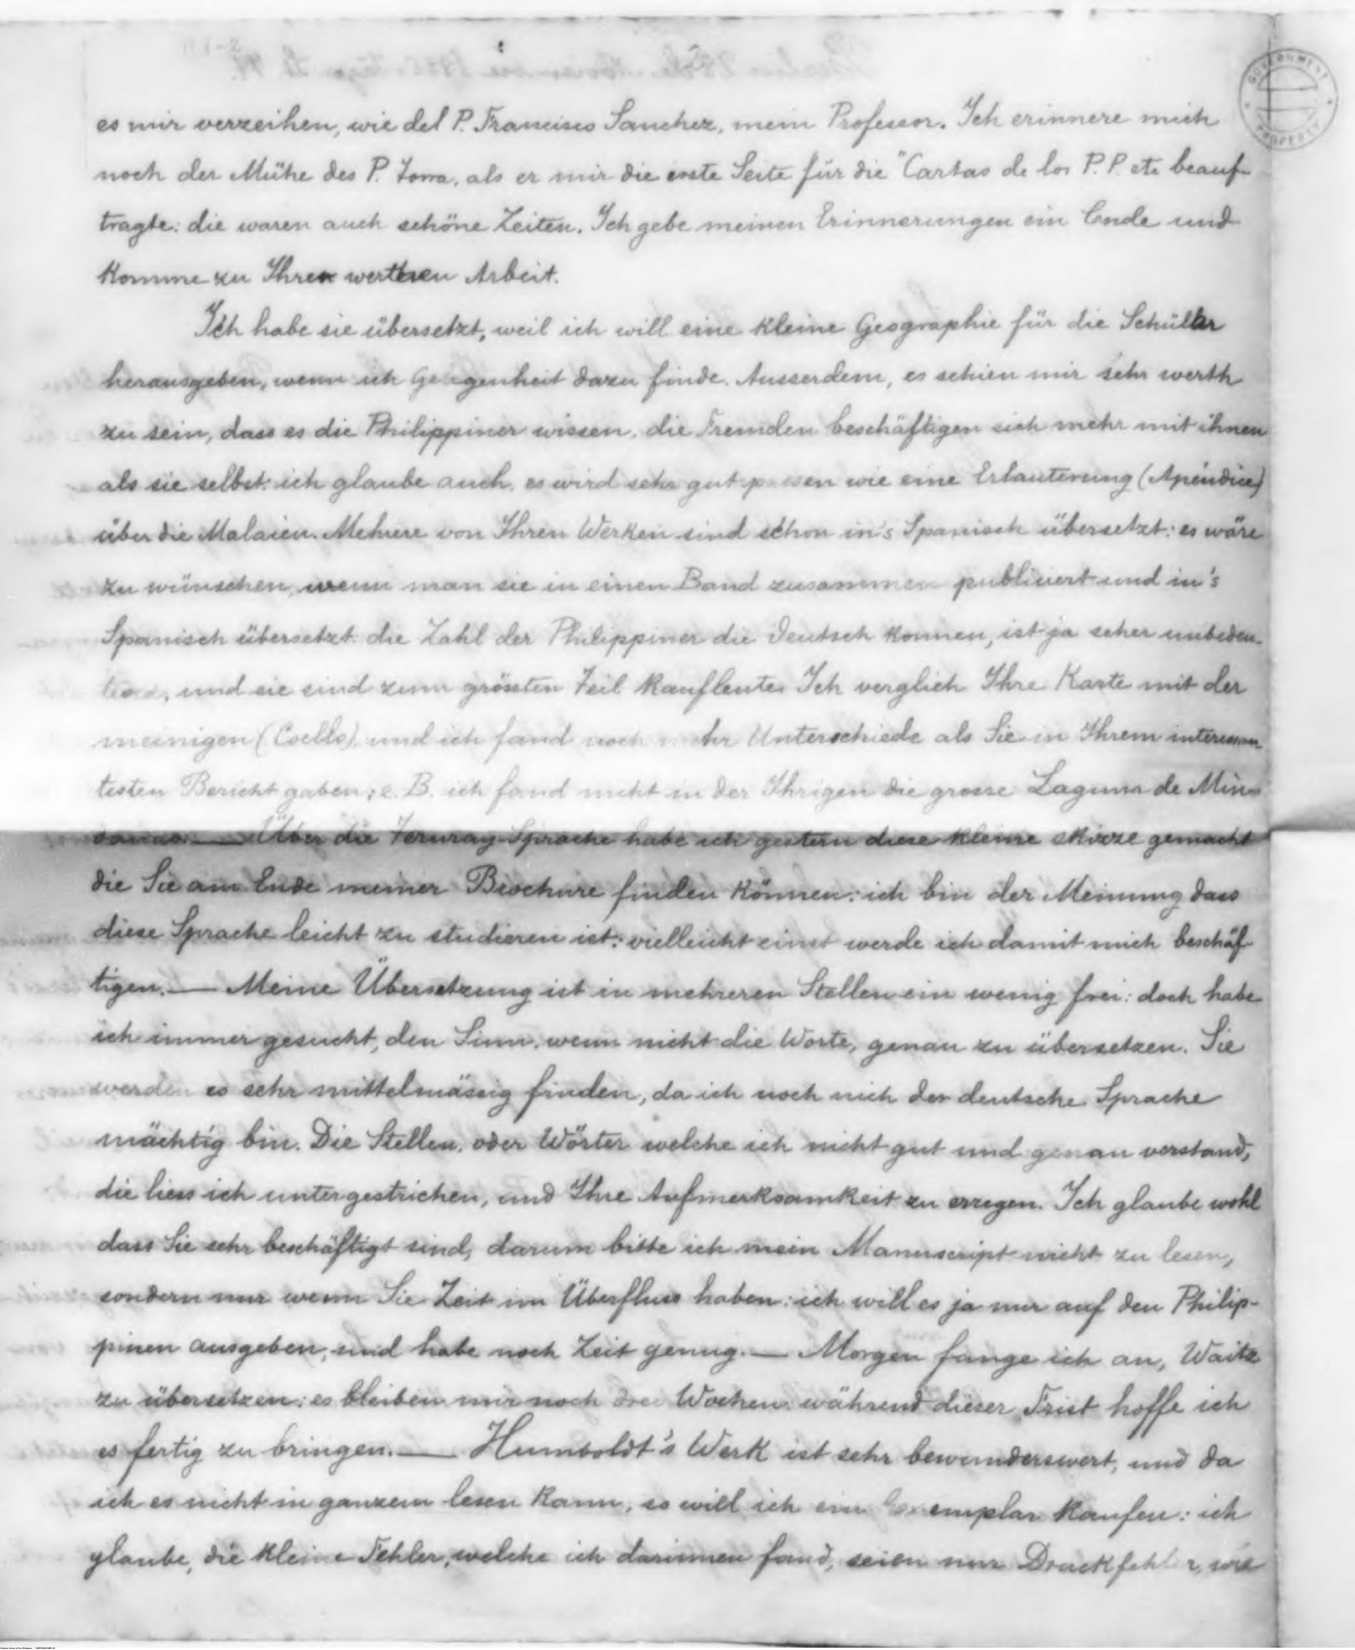 es mir verzeihen, wie del P. Francisco Sanchez, mein Professor. Ich erinnere mich
noch der Mühe des P. Torra, als er mir die erste Seite für die "Cartas de los P.P. etc beauf-
tragte: die waren auch schöne Zeiten. Ich gebe meinen Erinnerungen ein Ende und
komme zu Ihren werthen Arbeit.
Ich habe sie übersetzt, weil ich will eine kleine Geographie für die Schüller
herausgeben, wenn ich Gelegenheit dazu finde. Ausserdem, es schien mir sehr werth
zu sein, dass es die Philippiner wissen, die Fremden beschäftigen sich mehr mit ihnen
als sie selbst: ich glaube auch, es wird sehr gut passen wie eine Erlauterung (Apéndice)
über die Malaien. Mehrere von Ihren Werken sind schon in's Spanisch übersetzt: es wäre
zu wünschen, wenn man sie in einen Band zusammen publiciert und in's
Spanisch übersetzt: die Zahl der Philippiner die Deutsch konnen, ist ja seher unbedeu-
tend, und sie sind zum grössten Teil Kaufleute. Ich verglich Ihre Karte mit der
meinigen (Coello), und ich fand noch mehr Unterschiede als Sie in Ihrem interessan-
testen Bericht gaben; z. B. ich fand nicht in der Ihrigen die grosse Laguna de Min-
danao. — Über die Tiruray Sprache habe ich gestern diese kleine skizze gemacht
die Sie am Ende meiner Brochure finden können: ich bin der Meinung dass
diese Sprache leicht zu studieren ist: vielleicht einst werde ich damit mich beschäf-
tigen. — Meine Übersetzung ist in mehreren Stellen ein wenig frei: doch habe
ich immer gesucht, den Sinn, wenn nicht die Worte, genau zu übersetzen. Sie
werden es sehr mittelmässig finden, da ich noch nich der deutsche Sprache
mächtig bin. Die Stellen, oder Wörter welche ich nicht gut und genau verstand,
die liess ich untergestrichen, und Ihre Aufmerksamkeit zu erregen. Ich glaube wohl
dass Sie sehr beschäftigt sind, darum bitte ich mein Manuscript nicht zu lesen,
sondern nur wenn Sie Zeit im Überfluss haben: ich will es ja nur auf den Philip-
pinen ausgeben, und habe noch Zeit genug. — Morgen fange ich an, Waitz
zu übersetzen: es bleiben mir noch drei Wochen. während dieser Frist hoffe ich
es fertig zu bringen. — Humboldt's Werk ist sehr bewunderswert, und da
ich es nicht in ganzem lesen kann, so will ich ein Exemplar kaufen: ich
glaube, die kleine Fehler, welche ich darinnen fand, seien nur Druckfehler, wie
GOVERNMENT PROPERTY